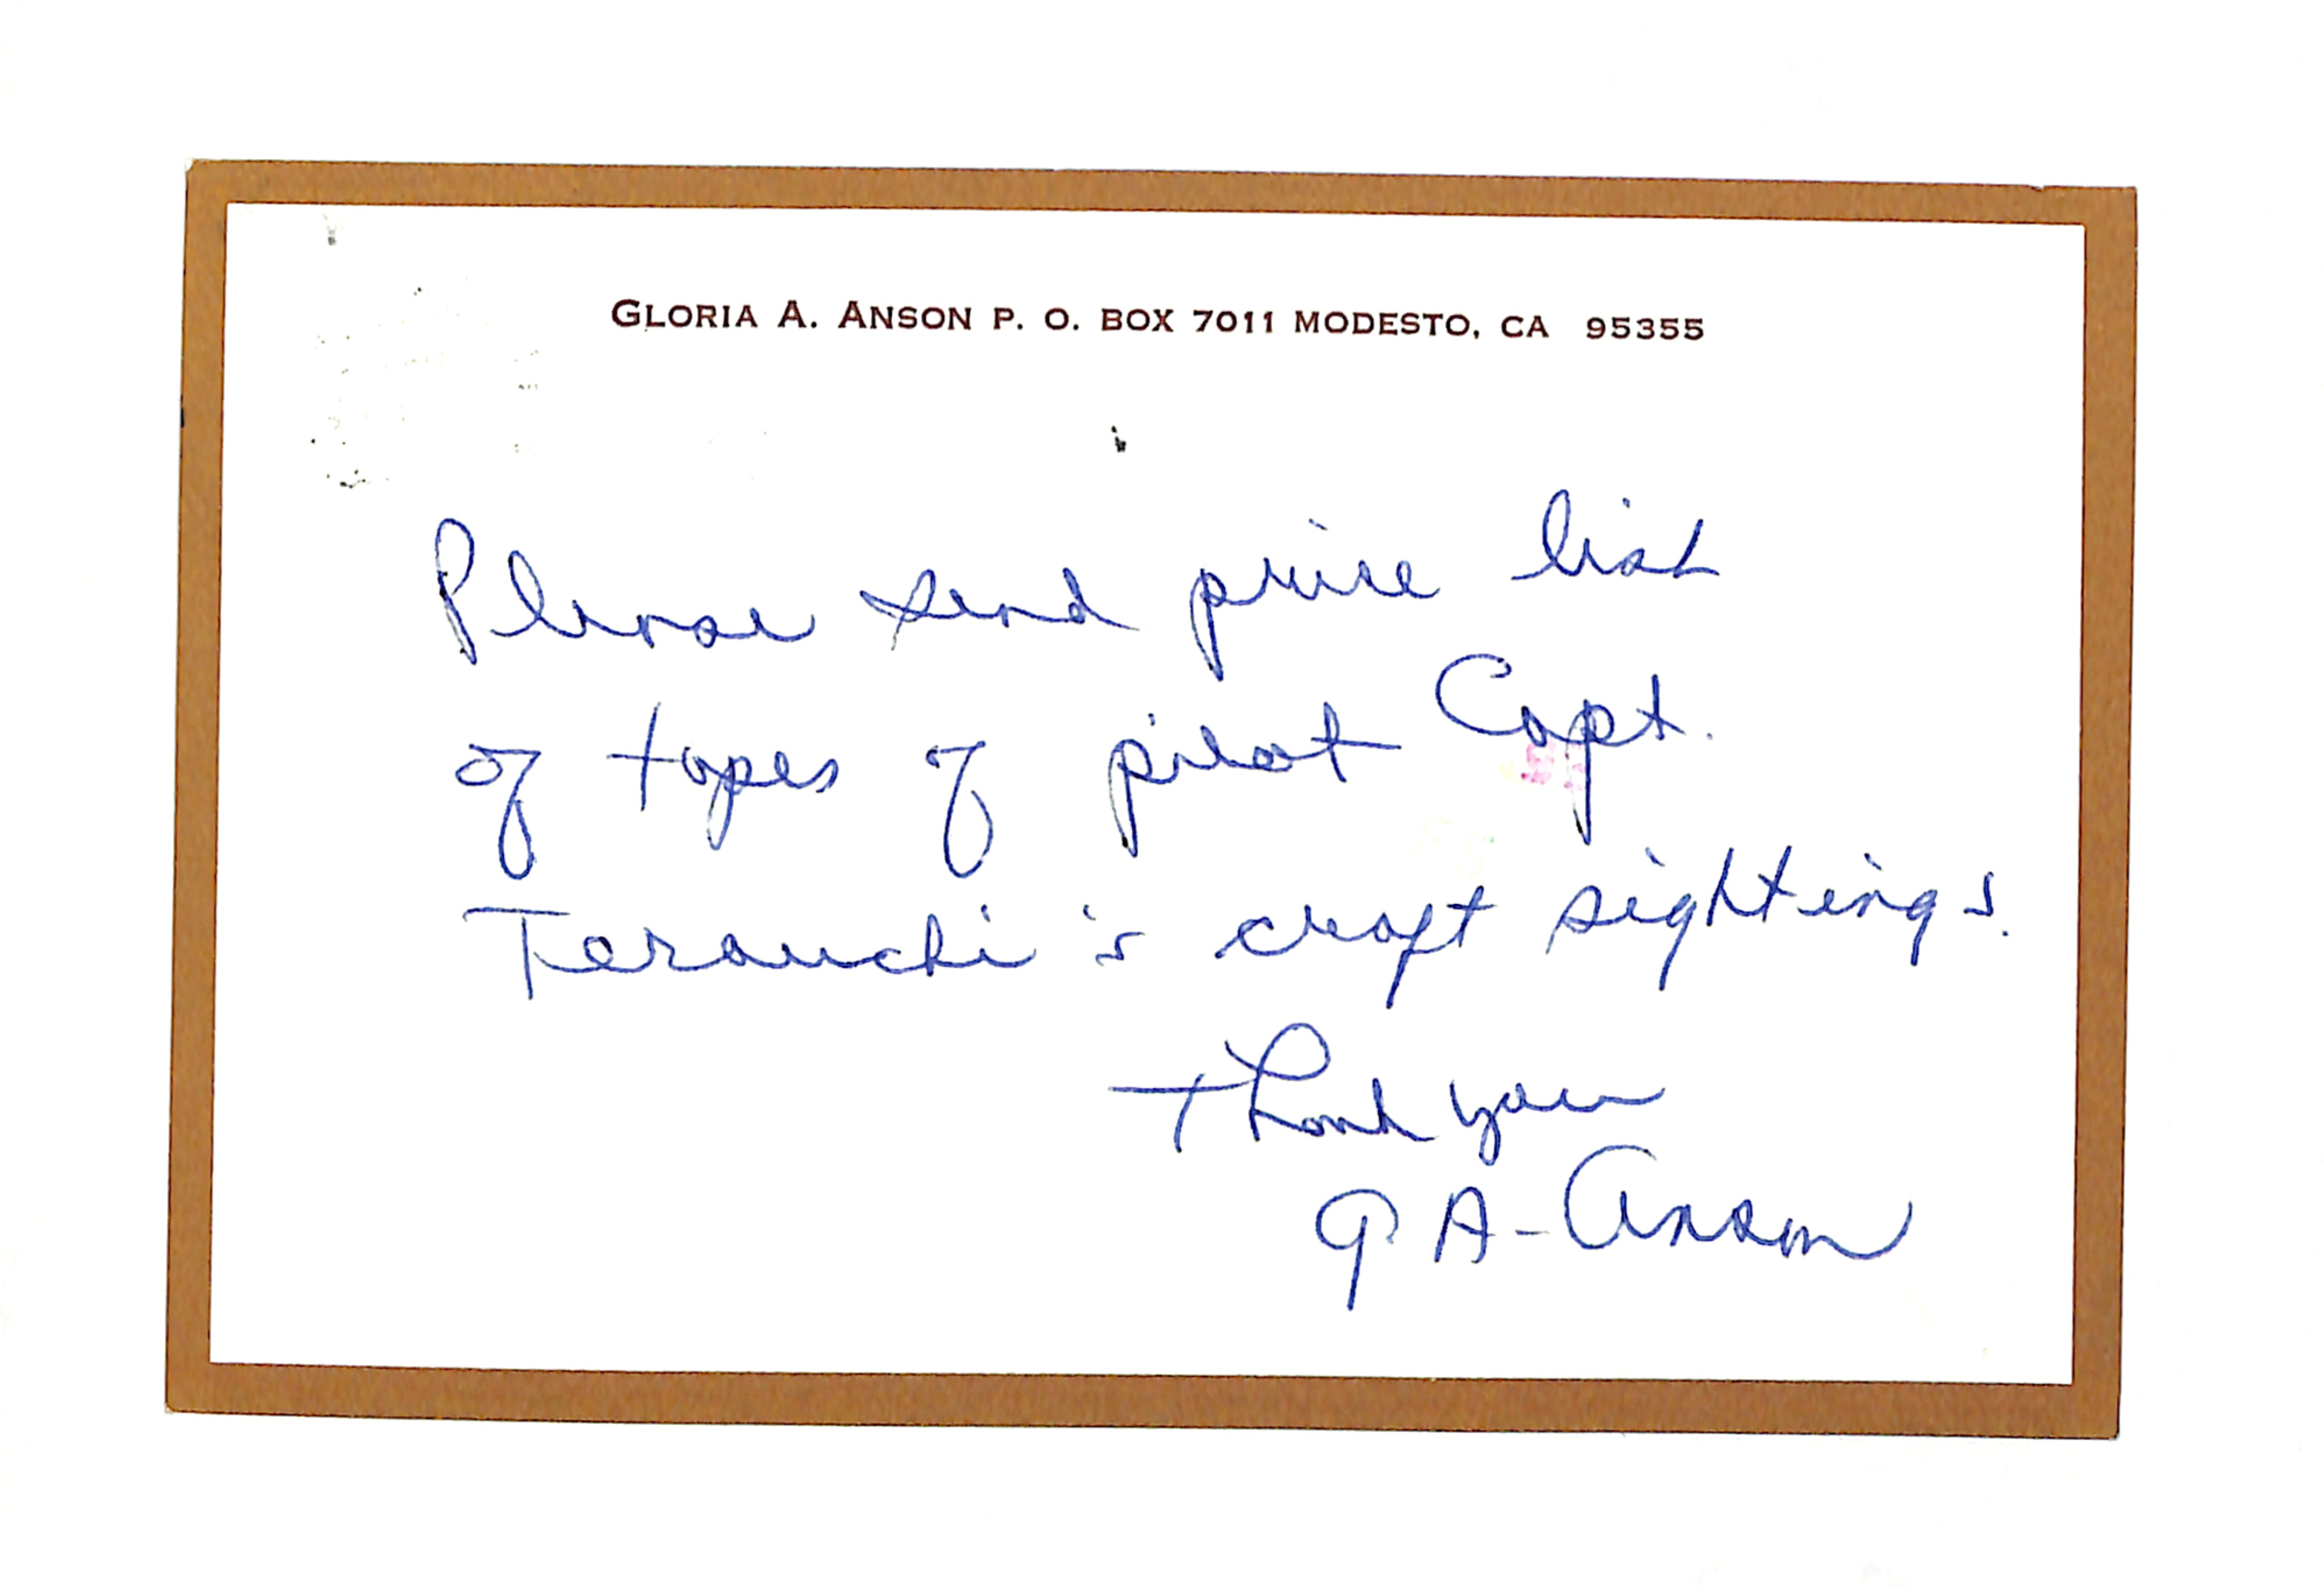 GLORIA A. ANSON P. O. BOX 7011 MODESTO, CA 95355
Please send price list
of tapes of pilot Capt.
Terauchi's craft sightings.
Thank you
G A - Anson